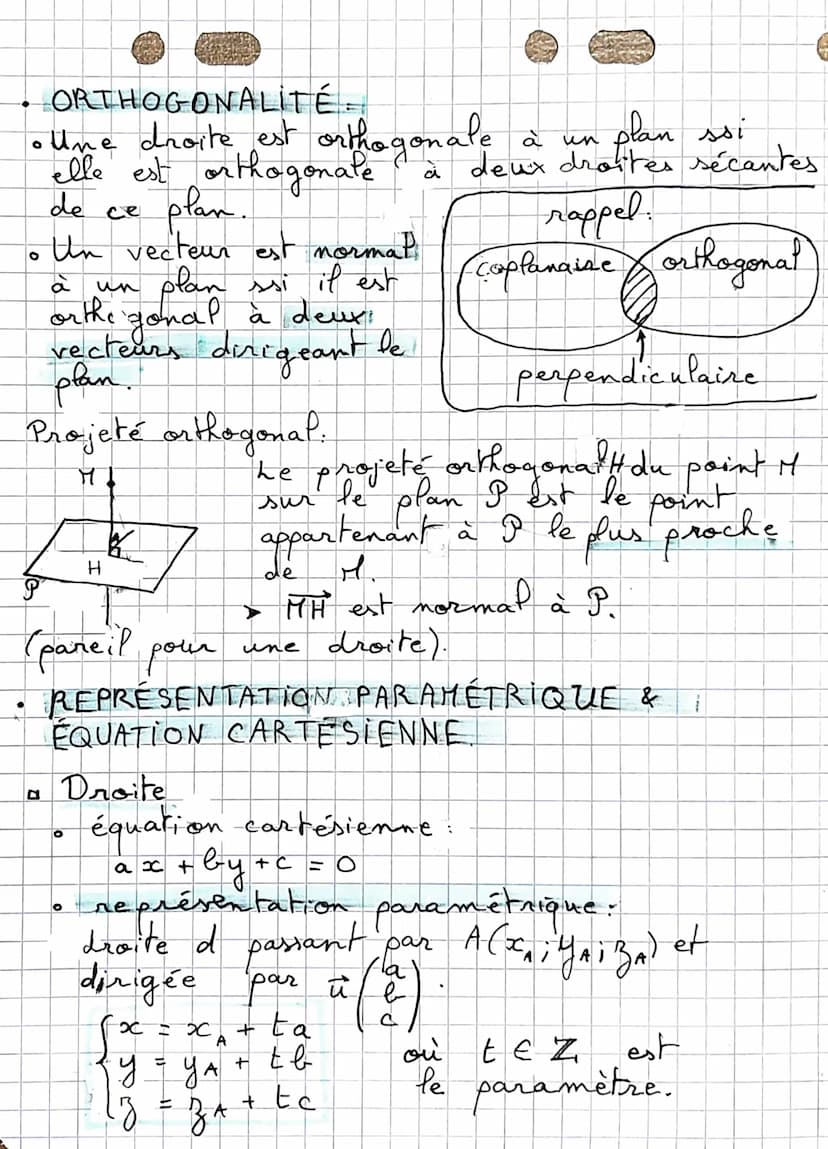 • ORTHOGONALITÉ :
∘ Une droite est orthogonale à un plan ssi
elle est orthogonale à deux droites sécantes
de ce plan.
∘ Un vecteur est normal
à un plan ssi il est
orthogonal à deux
vecteurs dirigeant le
plan.
rappel :
coplanaire orthogonal
perpendiculaire
Projeté orthogonal :
M
H
P
Le projeté orthogonal H du point M
sur le plan P est le point
appartenant à P le plus proche
de M.
➤ MH⃗ est normal à P.
(pareil pour une droite).
• REPRÉSENTATION PARAMÉTRIQUE &
ÉQUATION CARTÉSIENNE.
▫ Droite
∘ équation cartésienne :
ax + by + c = 0
∘ représentation paramétrique :
droite d passant par A(x_A ; y_A ; z_A) et
dirigée par u⃗ (a b c).
{ x = x_A + ta
y = y_A + tb où t ∈ ℤ est
z = z_A + tc le paramètre.